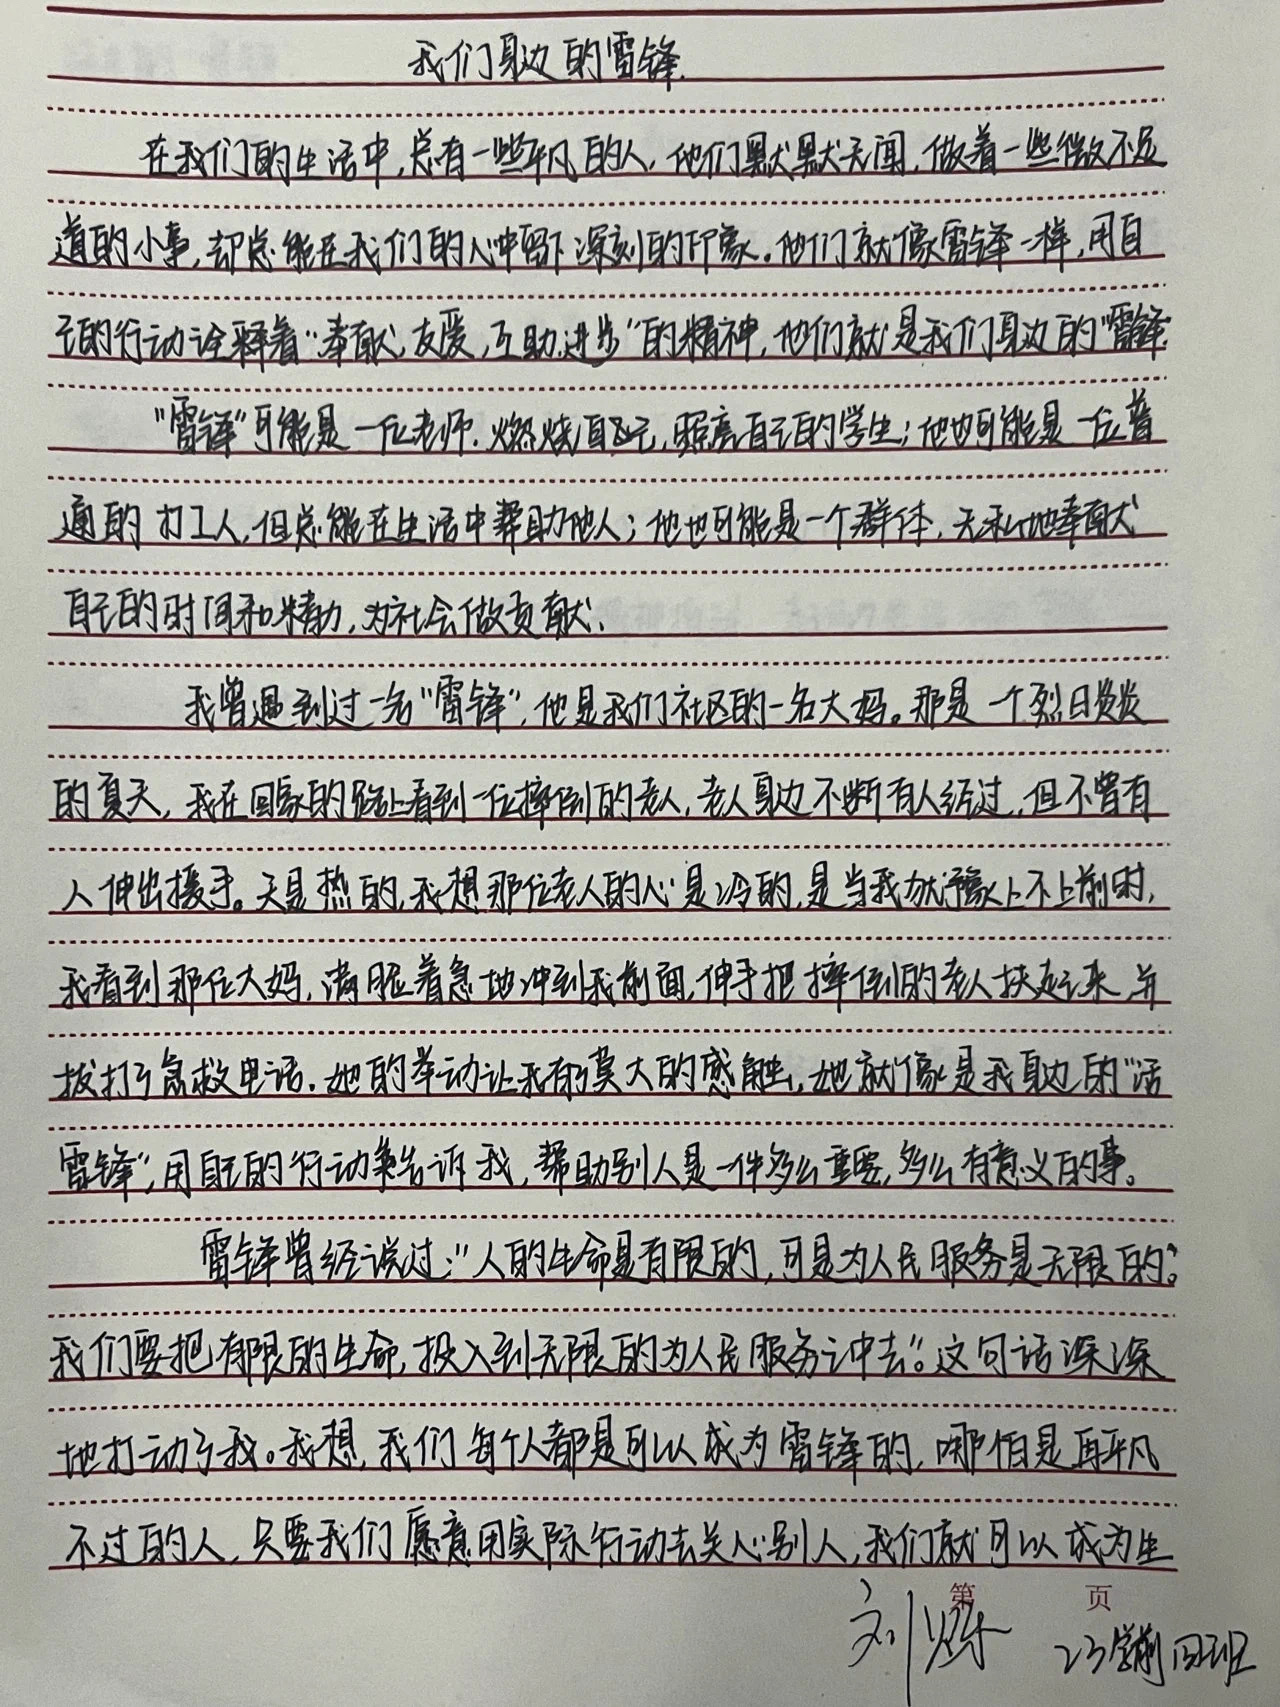 我们身边的雷锋
在我们的生活中,总有一些平凡的人,他们默默无闻,做着一些微不足
道的小事,却总能在我们的心中留下深刻的印象。他们就像雷锋一样,用自
己的行动诠释着“奉献,友爱,互助,进步”的精神,他们就是我们身边的“雷锋”
“雷锋”可能是一位老师,燃烧自己,照亮自己的学生;他也可能是一位普
通的打工人,但总能在生活中帮助他人;他也可能是一个群体,无私地奉献
自己的时间和精力,为社会做贡献、
我曾遇到过一名“雷锋”,他是我们社区的一名大妈。那是一个烈日炎炎
的夏天,我在回家的路上看到一位摔倒的老人,老人身边不断有人经过,但不曾有
人伸出援手。天是热的,我想那位老人的心是冷的,是当我犹豫上不上前时,
我看到那位大妈,满脸着急地冲到我前面,伸手把摔倒的老人扶起来,并
拨打了急救电话.她的举动让我有了莫大的感触,她就像是我身边的“活
雷锋”,用自己的行动来告诉我,帮助别人是一件多么重要,多么有意义的事。
雷锋曾经说过:“人的生命是有限的,可是为人民服务是无限的。
我们要把有限的生命,投入到无限的为人民服务之中去”。这句话深深
地打动了我。我想,我们每个人都是可以成为雷锋的,哪怕是再平凡
不过的人,只要我们愿意用实际行动去关心别人,我们就可以成为生
第 页
刘烁 23学前四班